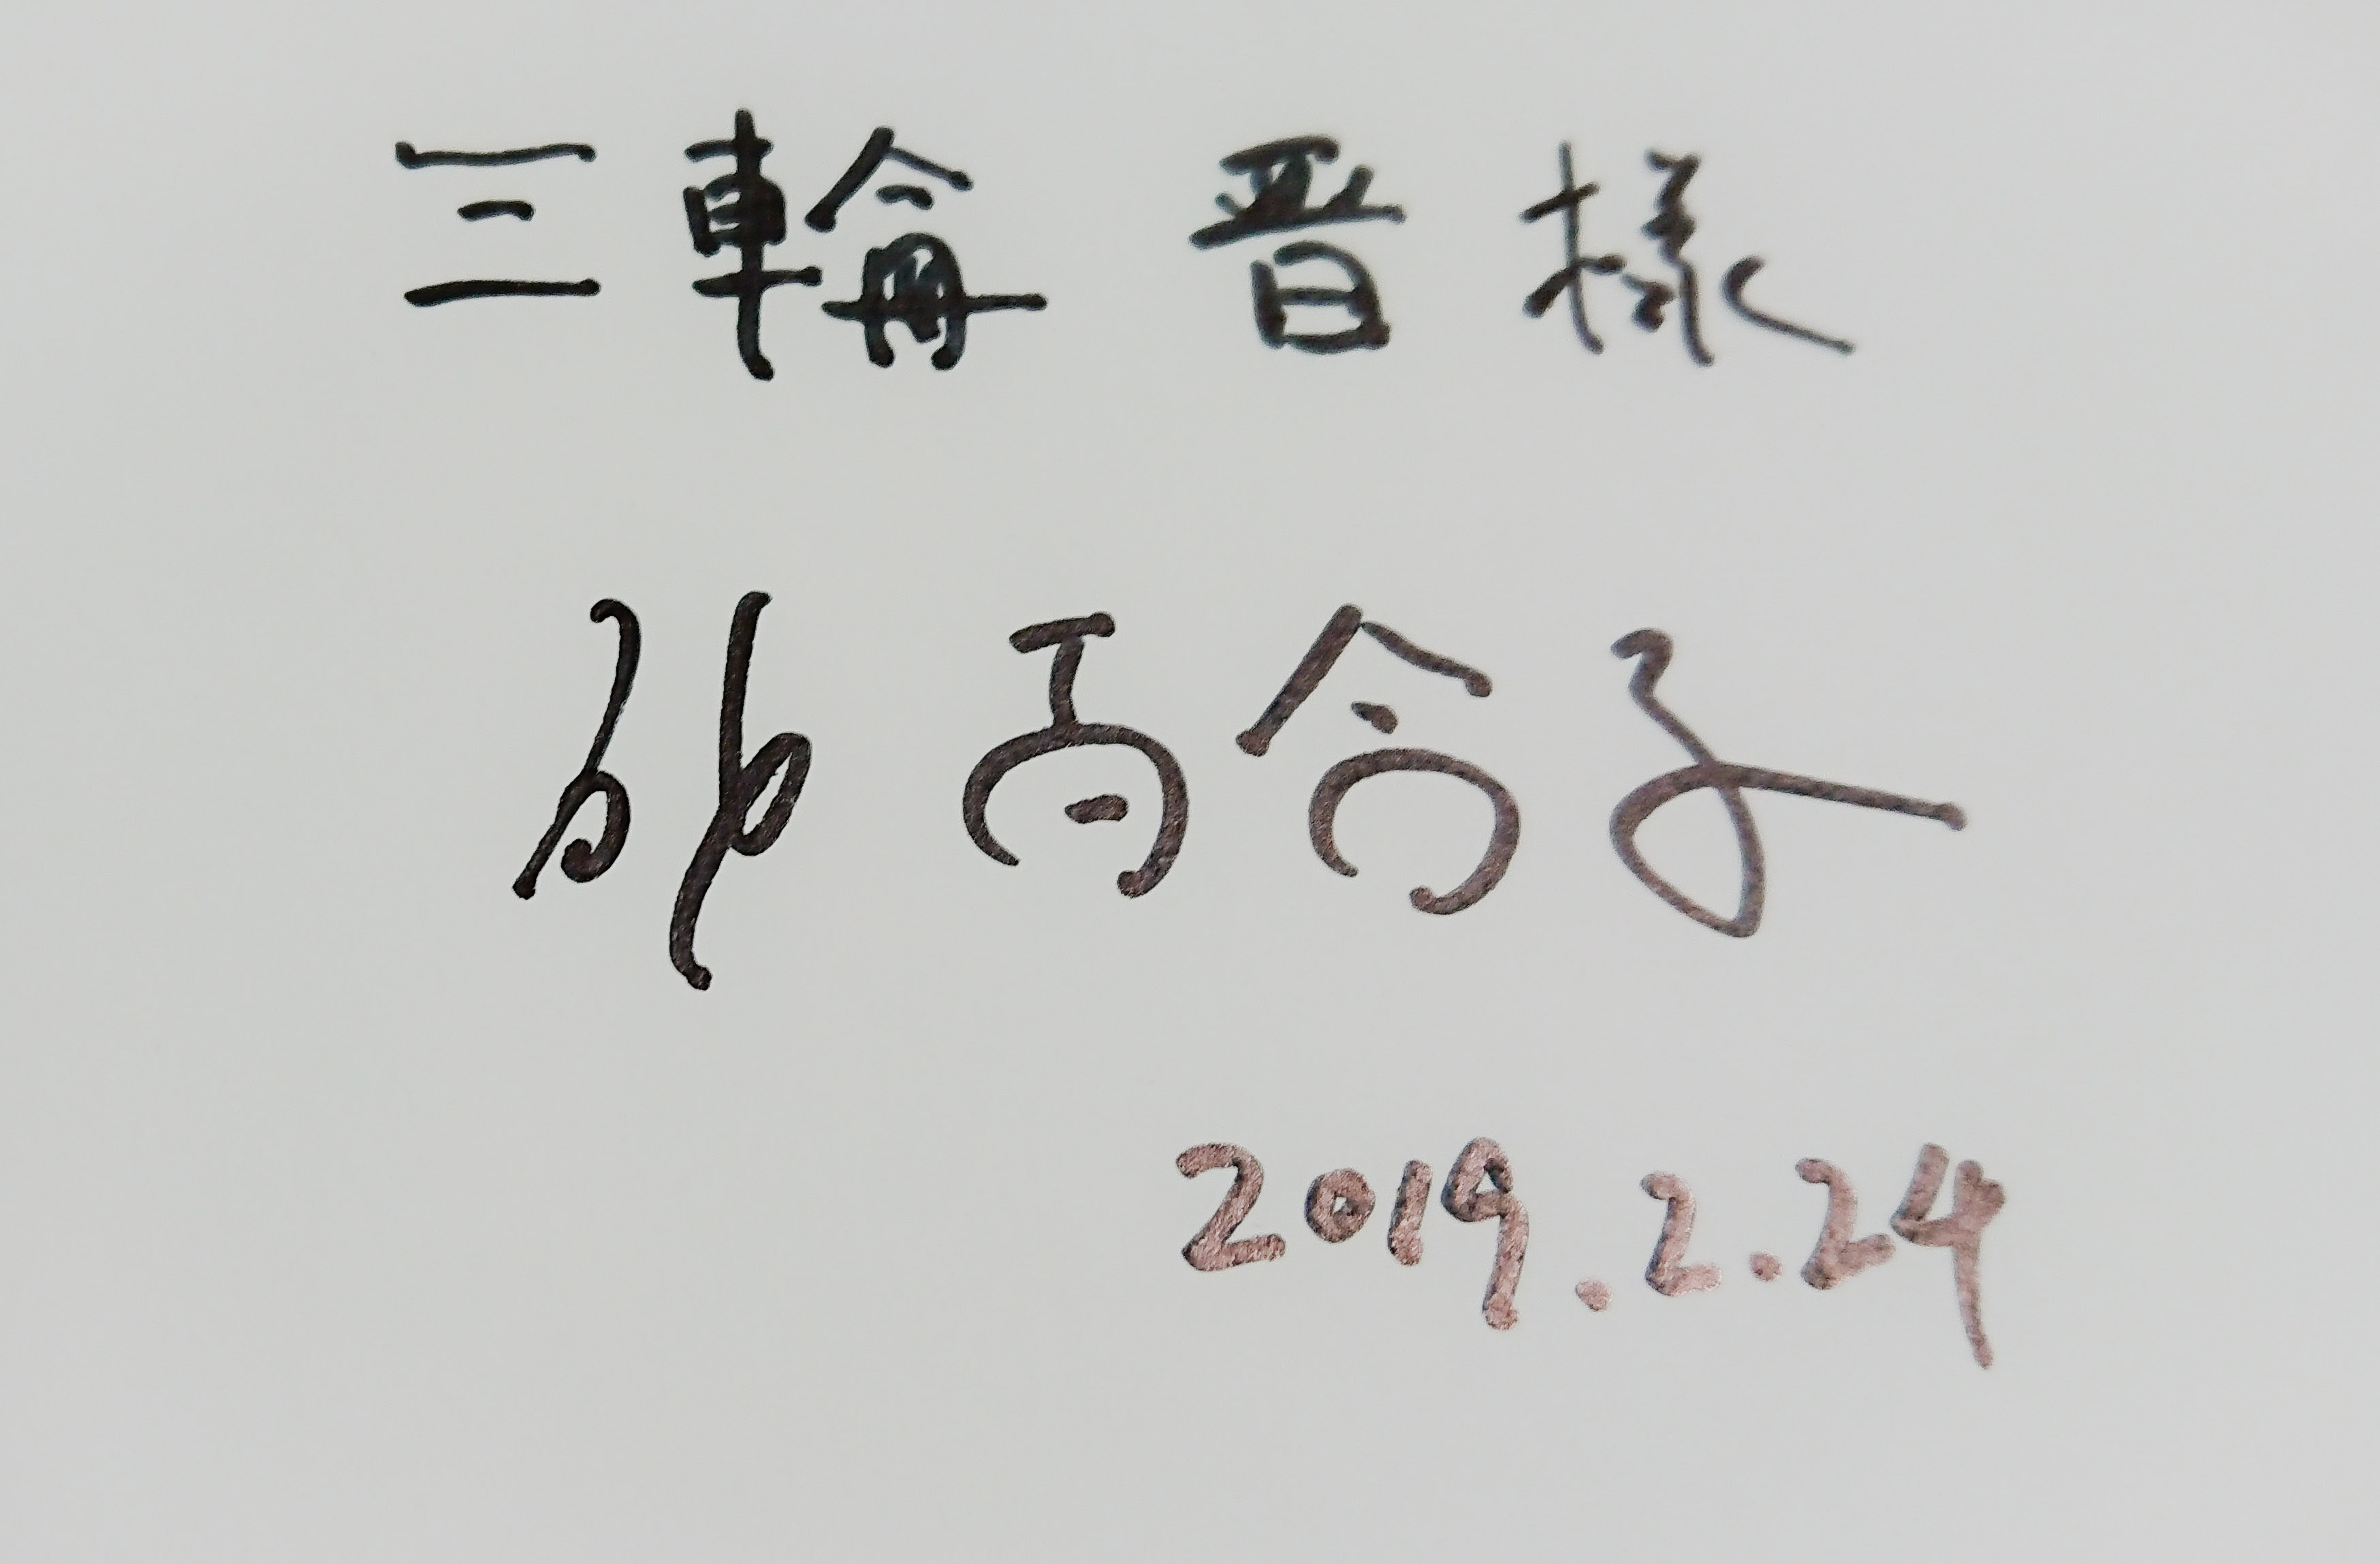 三輪 晋 様
百合子
2019.2.24